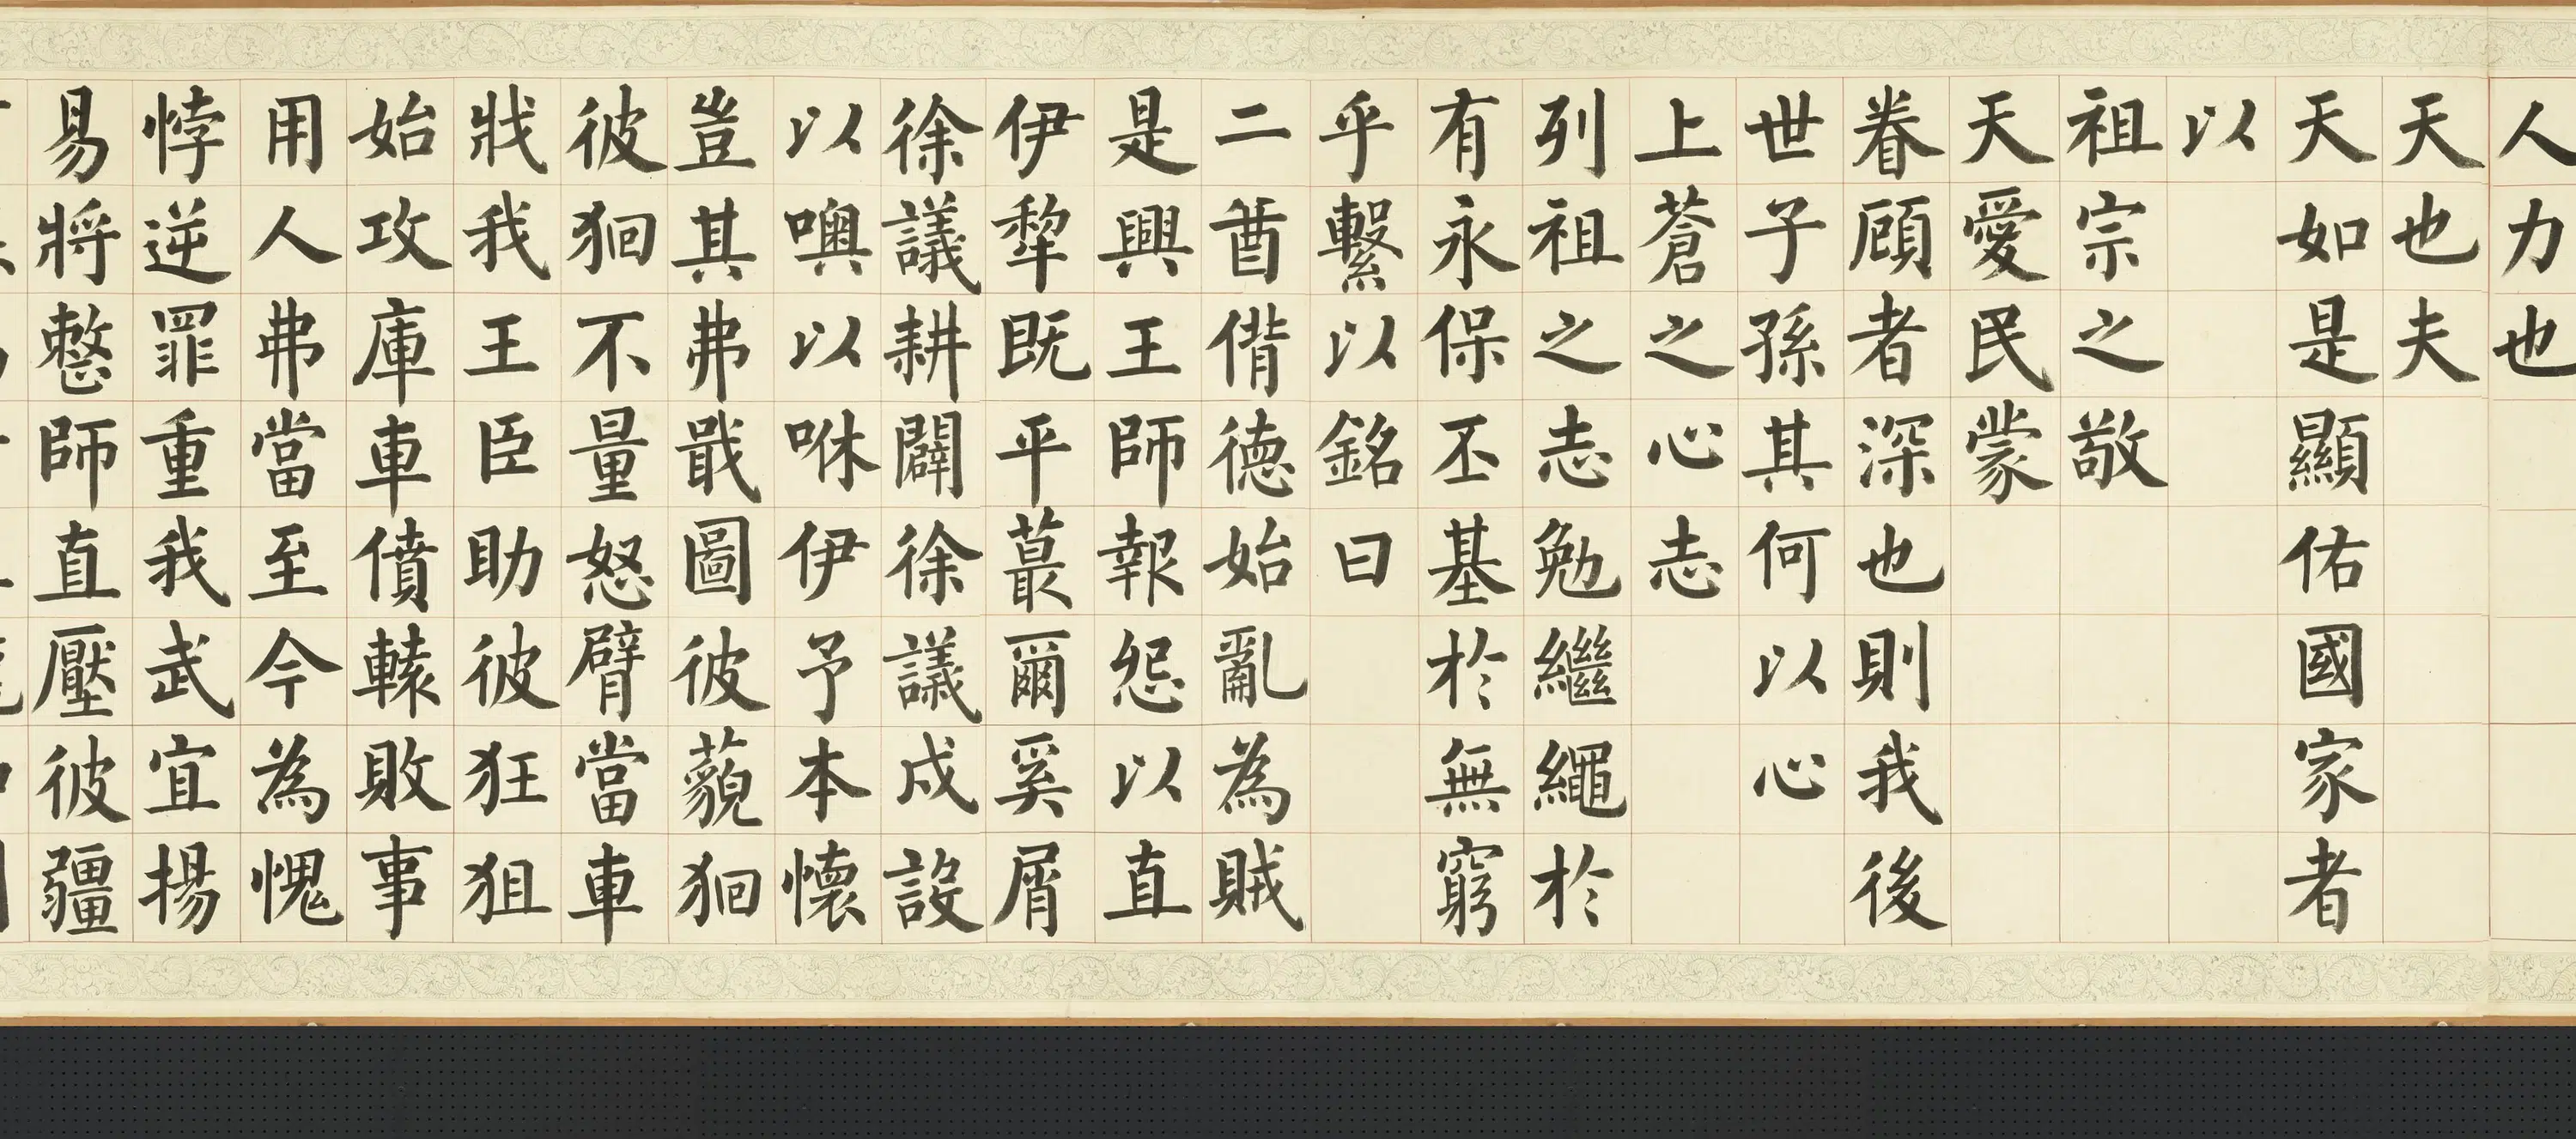 人力也
天也夫
天如是顯佑國家者
以
祖宗之敬
天愛民蒙
眷顧者深也則我後
世子孫其何以心
上蒼之心志
列祖之志勉繼繩於
有永保丕基於無窮
乎繫以銘曰
二酋偝德始亂為賊
是興王師報怨以直
伊犂既平蕞爾奚屑
徐議耕闢徐議戍設
以噢以咻伊予本懷
豈其弗戢圖彼藐
彼不量怒臂當車
戕我王臣助彼狂狙
始攻庫車僨轅敗事
用人弗當至今為愧
悖逆罪重我武宜揚
易將整師直壓彼疆